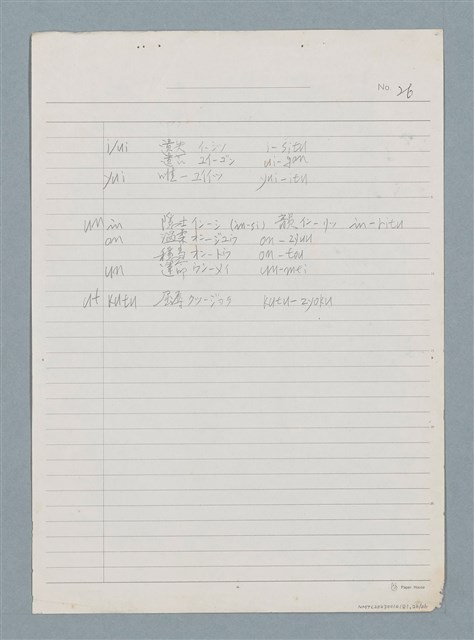 No. 26
i/ui 遺失 イーシツ i-situ
遺言 ユイーゴン ui-gon
yui 唯一 ユイイツ yui-itu
un in 隠士 インーシ (in-si) 韻 インーリツ in-ritu
on 温柔 オンージュウ on-zyuu
穏当 オンートウ on-tou
un 運命 ウンーメイ un-mei
ut kutu 屈辱 クツージョク kutu-zyoku
Paper House